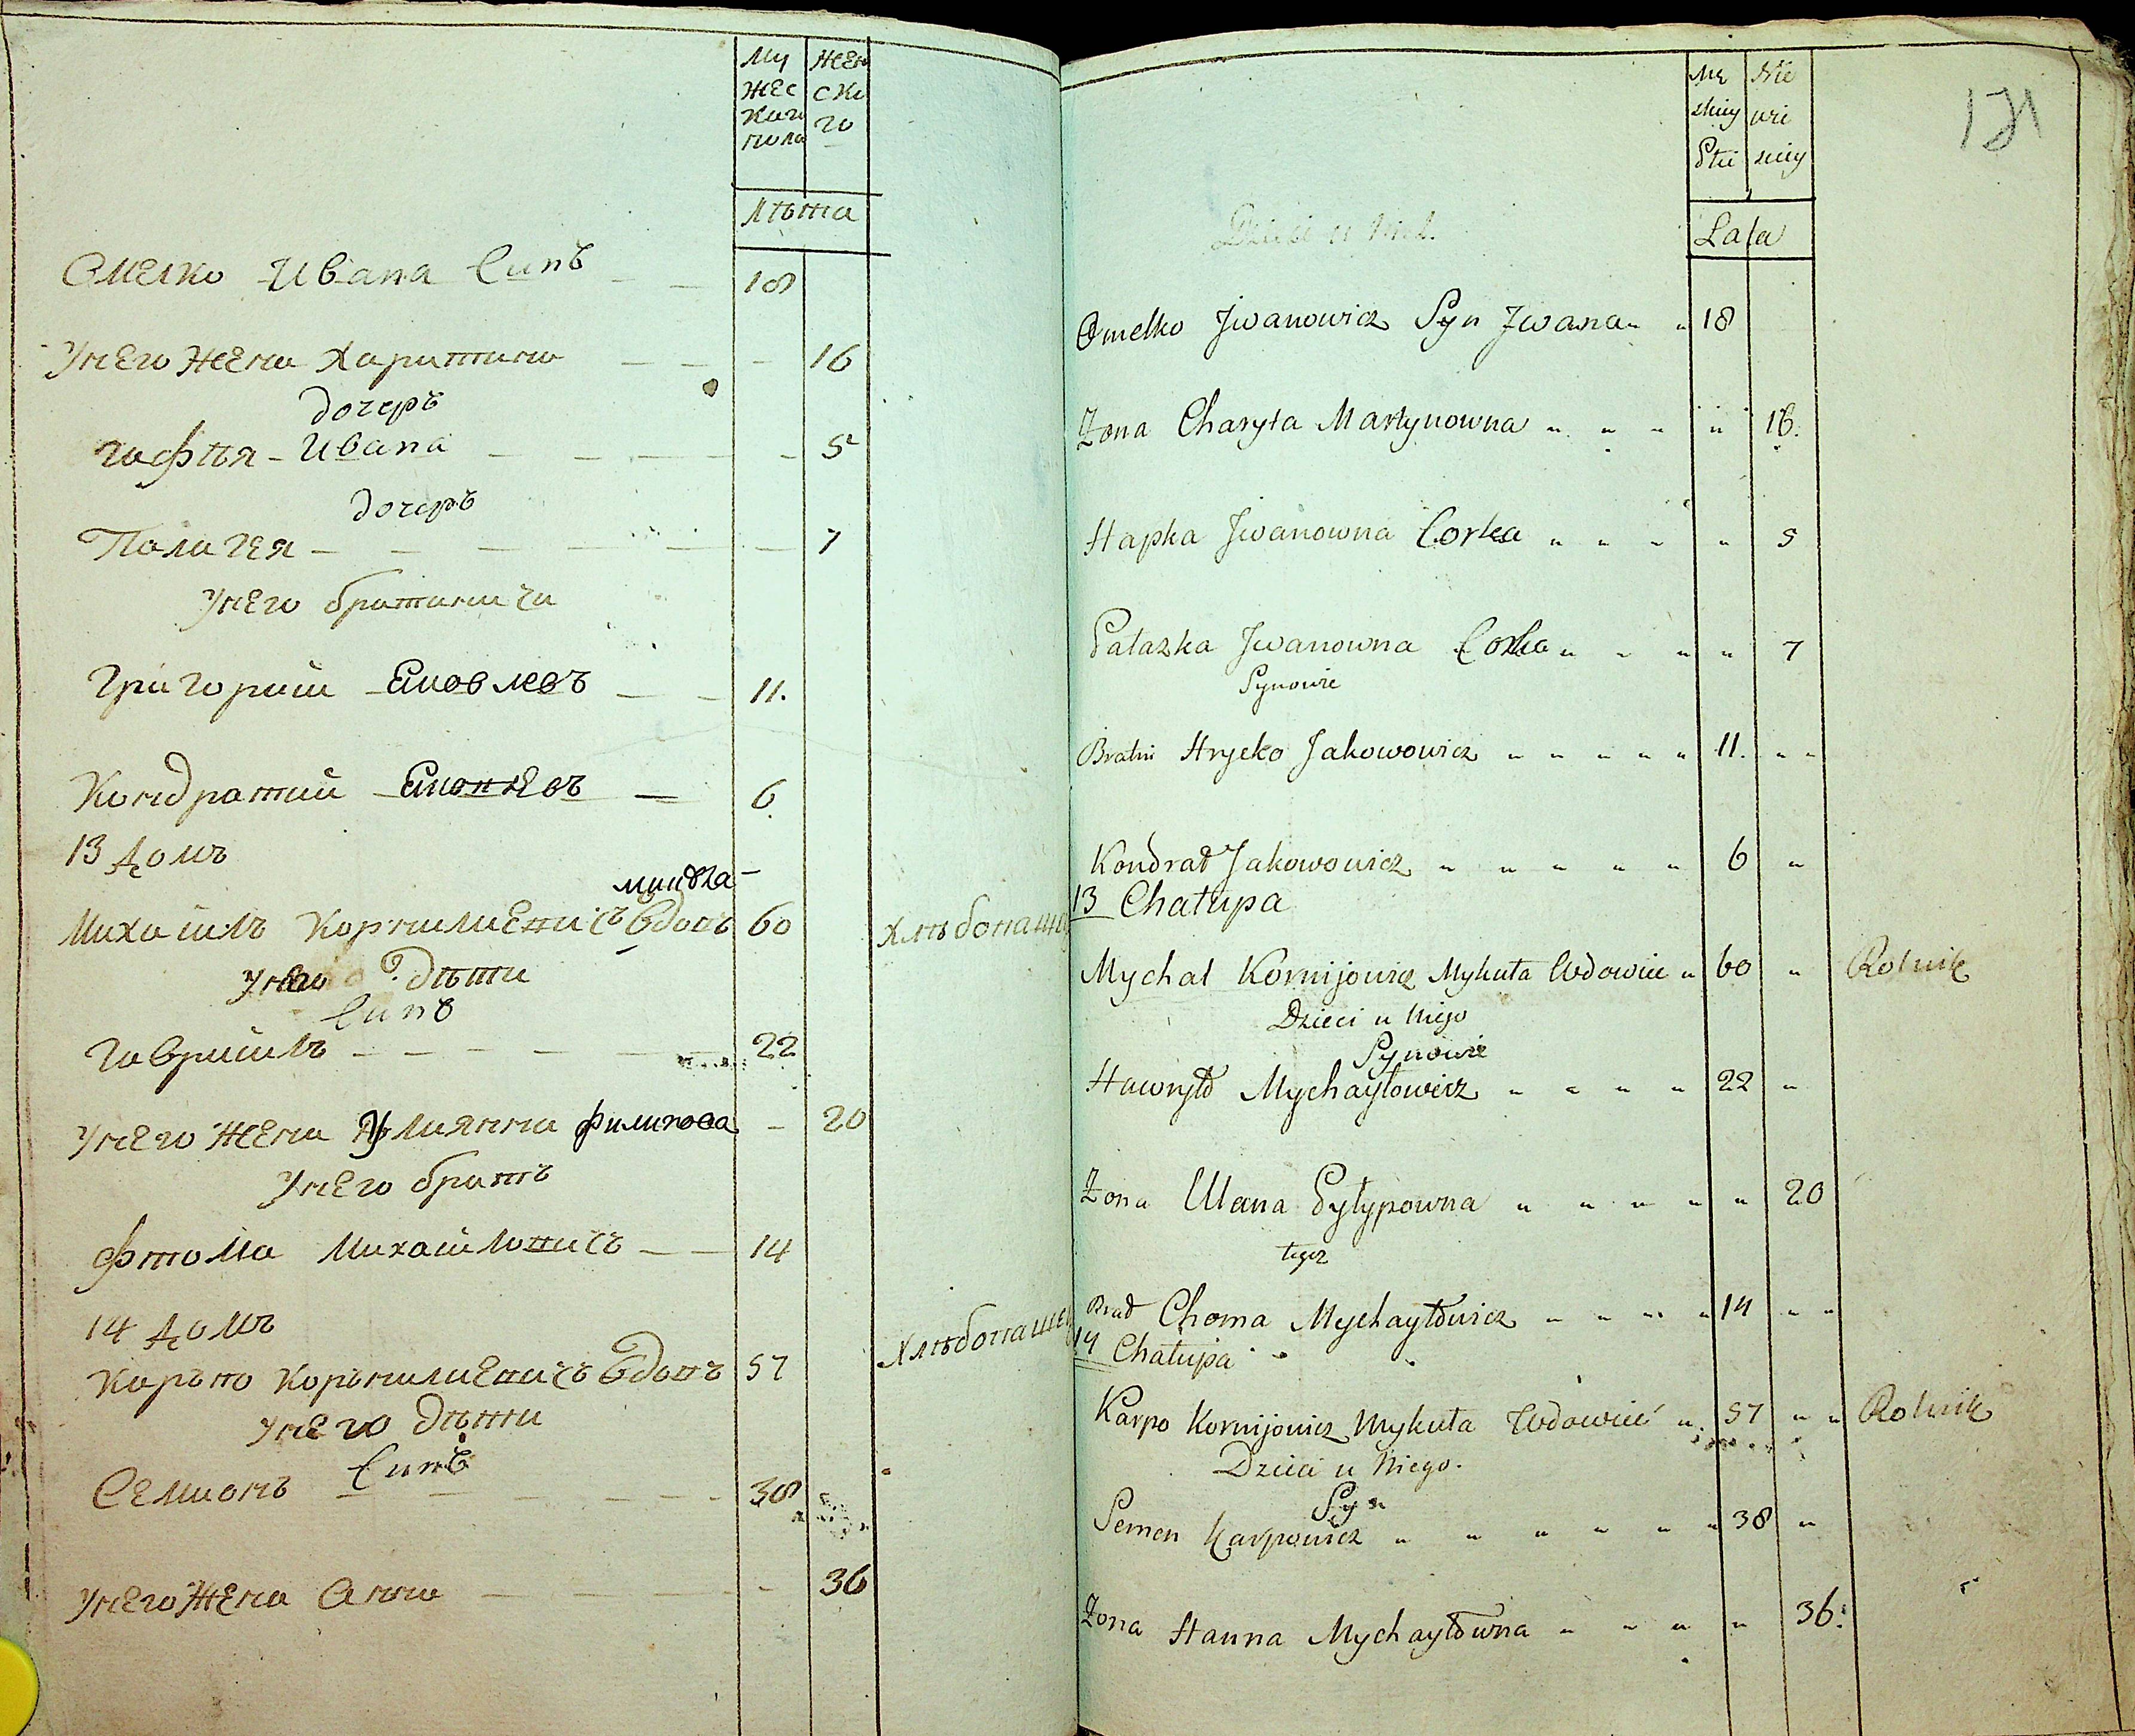 Му жес каго пола
Женскаго
лѣта
Омелко Ивана Синъ 18
Унего жена Харитина 16
дочеръ
Гафѣя Ивана 5
дочеръ
Палагея 7
Унего братаничи
Григорий Яковлевъ 11.
Кондратий 6
13 домъ
Михайлъ Корнилиевичъ вдовъ 60 хлѣбопашец
Унего дѣти
Синъ
Гавриилъ 22
Унего жена Улиянна Филипова 20
Унего братъ
Фтома Михайловичъ 14
14 домъ хлѣбопашец
Карпо Корнилиевичъ вдовъ 57
Унего дѣти
Синъ
Семионъ 38
Унего Жена Анна 36
171
Mę skiey Płci
Nie wie sciey
Lata
Dzieci u
Omelko Jwanowicz Syn Jwana 18
Żona Charyta Martynowna 16.
Hapka Jwanowna Corka 5
Pałazka Jwanowna Corka 7
Synowie
Bratni Hryćko Jakowowicz 11.
Kondrat Jakowowicz 6
13 Chałupa
Mychał Kornijowicz Mykuta Wdowiec 60 Rolnik
Dzieci u Niego
Synowie
Hawryło Mychayłowicz 22
Żona Ulana Pyłypowna 20
tegoż
Brat Choma Mychayłowicz 14
14 Chałupa
Karpo Kornijowicz Mykuta Wdowiec 57 Rolnik
Dzieci u Niego.
Syn
Semen Karpowicz 38
Żona Hanna Mychayłowna 36.